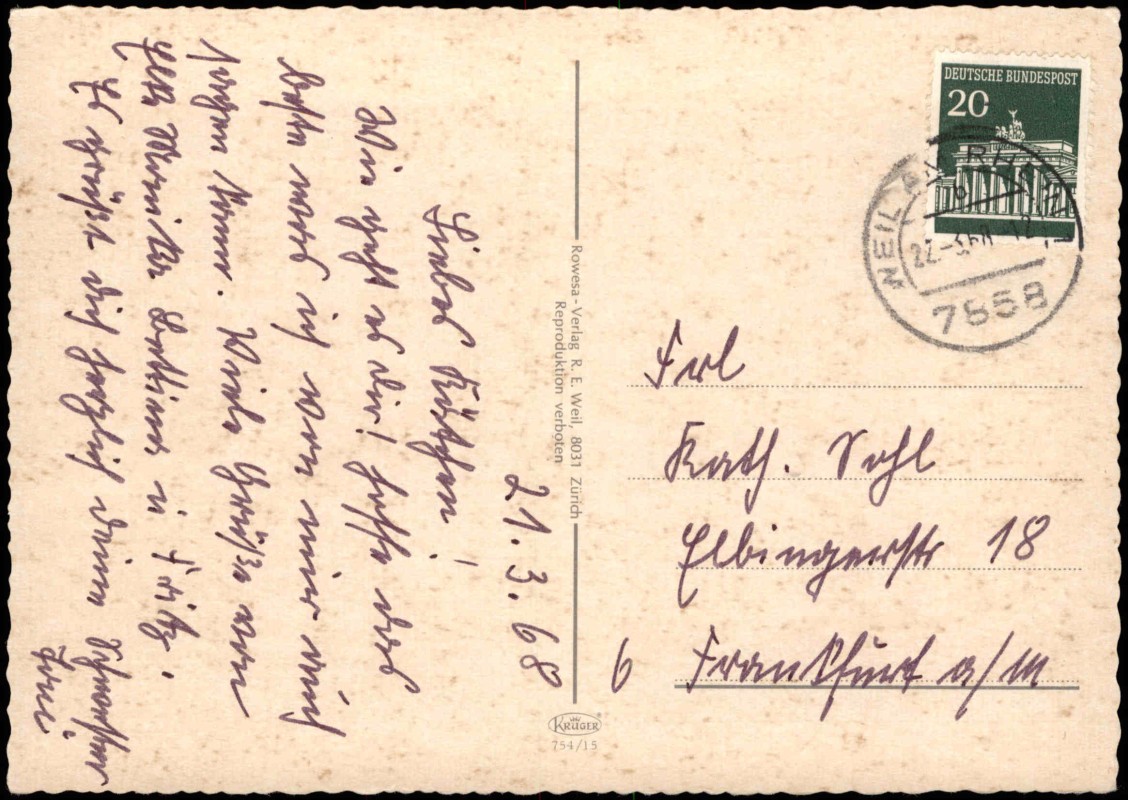 21. 3. 68
Liebes Käthchen!
Wie geht es dir! hoffe das
beste was ich von mir auch
sagen kann. Viele Grüße von
Bettina u. Fritz.
Es grüßt dich herzlich deine Schwester
Rowesa - Verlag R. E. Weil, 8031 Zürich
Reproduktion verboten
KRÜGER
754/15
DEUTSCHE BUNDESPOST
20
WEIL AM RHEIN
7858
Frl
Kath. Sohl
Elbingerstr 18
6 Frankfurt a/M